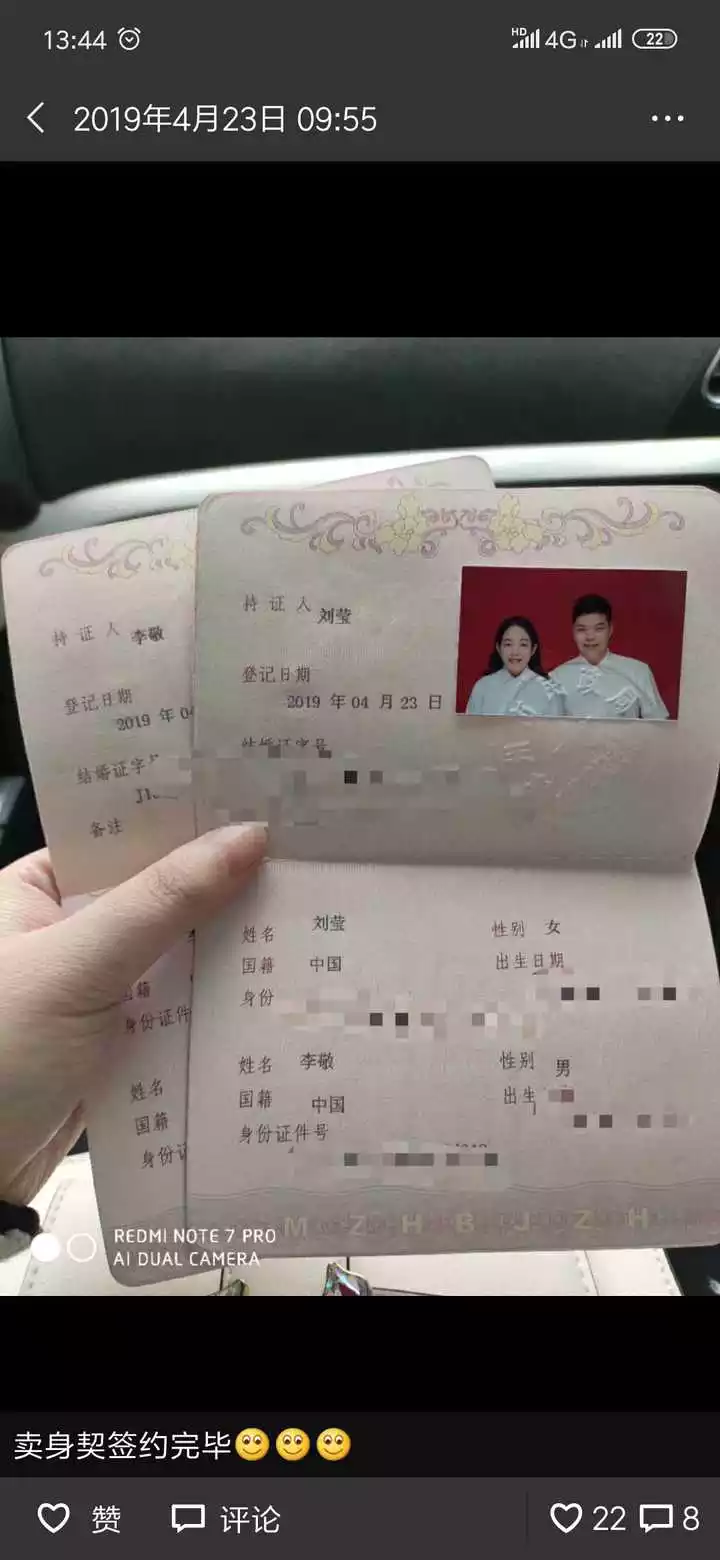 13:44
HD 4G 22
2019年4月23日 09:55
持证人 刘莹
登记日期
2019 年 04 月 23 日
结婚证字号
持证人 李敬
登记日期
2019 年 04
结婚证字
备注
姓名 刘莹 性别 女
国籍 中国 出生日期
身份
姓名 李敬 性别 男
国籍 中国 出生
身份证件号
国籍
身份证件
姓名
国籍
身份证
MZHBJZH
REDMI NOTE 7 PRO
AI DUAL CAMERA
卖身契签约完毕
赞 评论 22 8